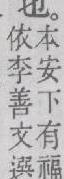 也。
本安下有福
依李善文選